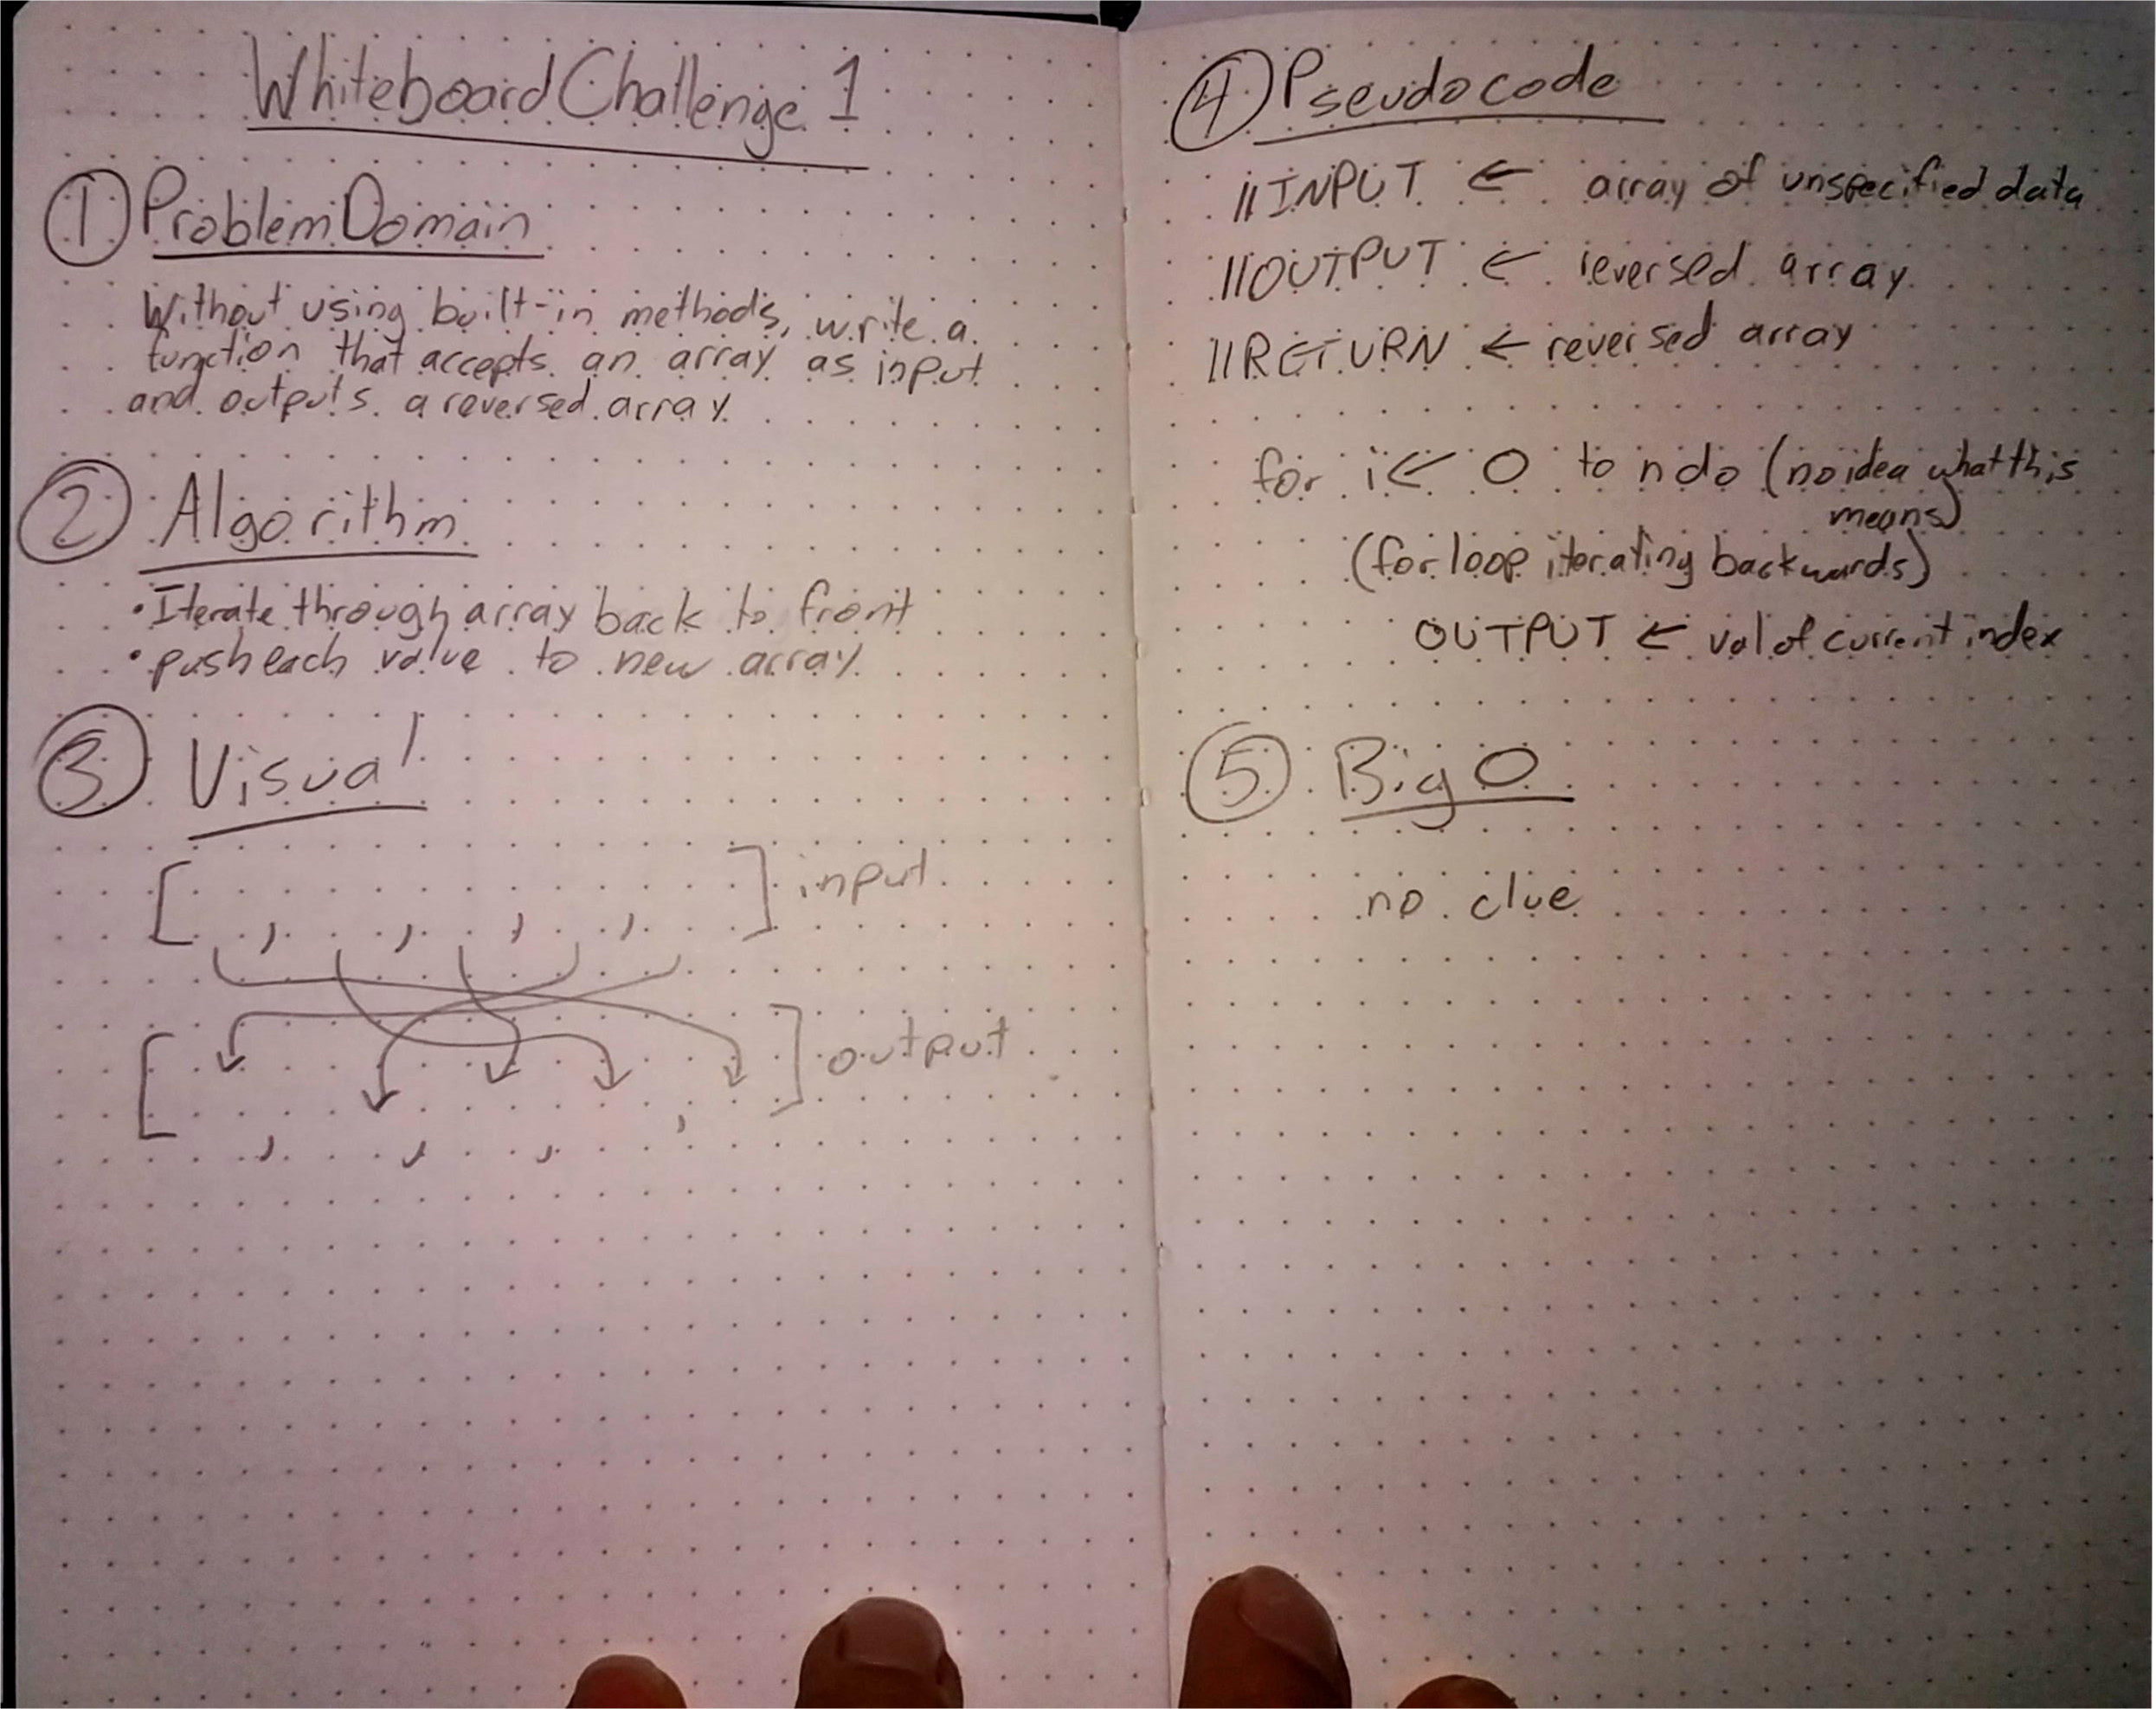 Whiteboard Challenge 1
① Problem Domain
Without using built-in methods, write a
function that accepts an array as input
and outputs a reversed array.
② Algorithm
• Iterate through array back to front
• push each value to new array
③ Visual
[ , , , , ] input
[ , , , , ] output
④ Pseudocode
//INPUT ← array of unspecified data
//OUTPUT ← reversed array
//RETURN ← reversed array
for i ← 0 to n do (no idea what this
means)
(for loop iterating backwards)
OUTPUT ← val of current index
⑤ Big O
no clue